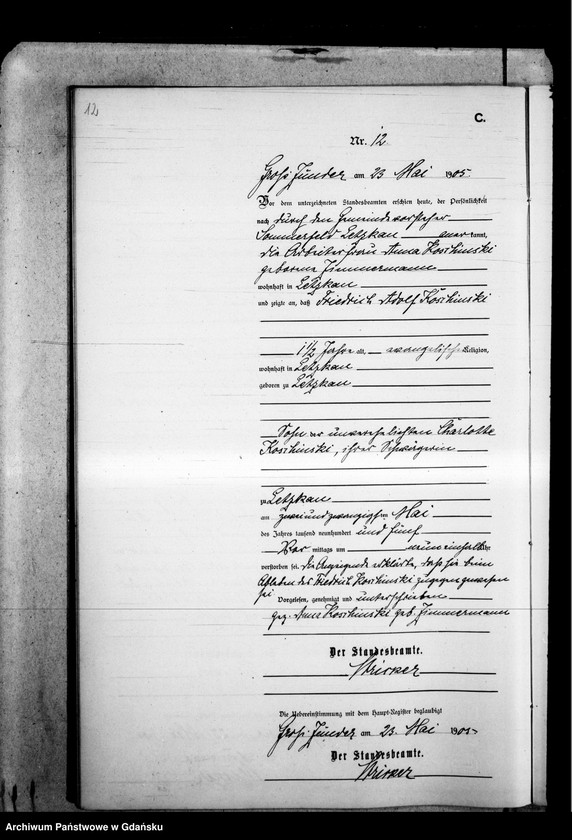 12
C.
Nr. 12
Groß Zünder am 23 Mai 1905
Vor dem unterzeichneten Standesbeamten erschien heute, der Persönlichkeit
nach durch den Gemeindevorsteher
Sommerfeld Letzkau anerkannt,
die Arbeiterfrau Anna Koschinski
geborene Zimmermann
wohnhaft in Letzkau
und zeigte an, daß Friedrich Adolf Koschinski
1 1/2 Jahre alt, evangelischer Religion,
wohnhaft in Letzkau
geboren zu Letzkau
Sohn der unverehelichten Charlotte
Koschinski, ihrer Schwägerin
zu Letzkau
am zweiundzwanzigsten Mai
des Jahres tausend neunhundert und fünf
Vor mittags um neuneinhalb Uhr
verstorben sei. Die Anzeigende erklärte, dass sie beim
Ableben des Friedrich Koschinski zugegen gewesen
sei Vorgelesen, genehmigt und unterschrieben
gez. Anna Koschinski geb. Zimmermann
Der Standesbeamte.
Die Uebereinstimmung mit dem Haupt-Register beglaubigt
Groß Zünder am 23. Mai 1905
Der Standesbeamte.
Archiwum Państwowe w Gdańsku